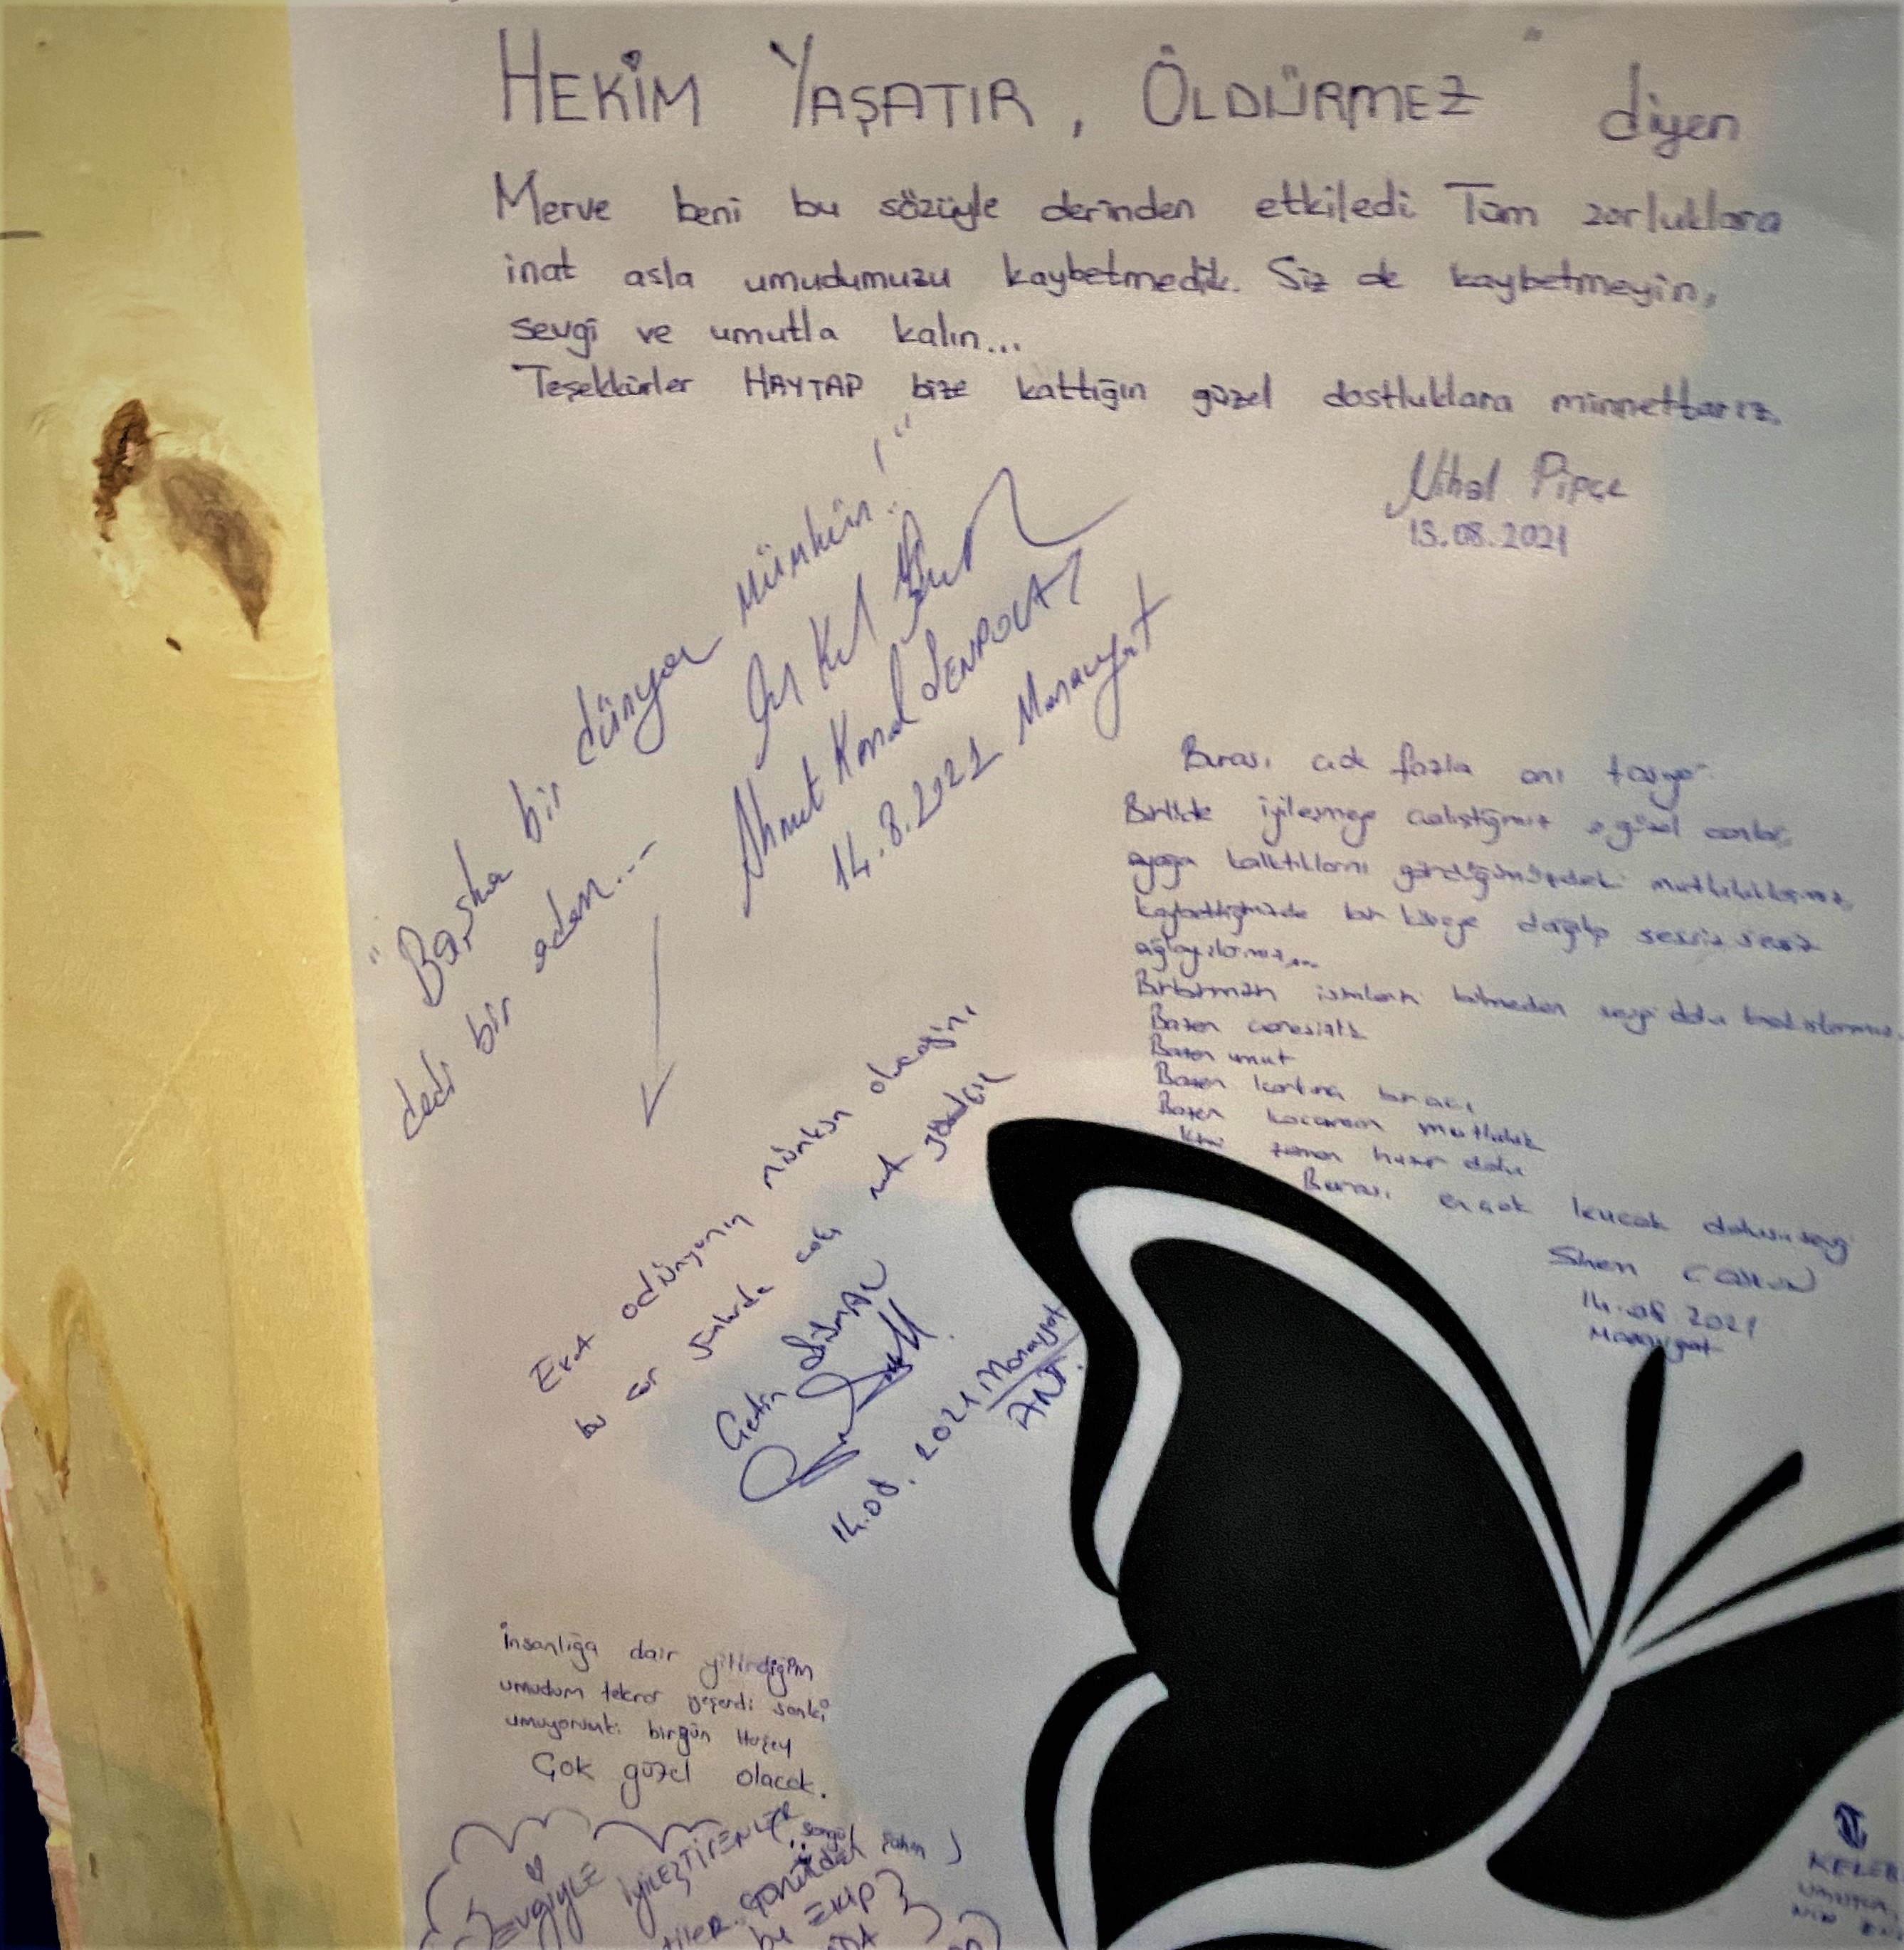 HEKİM YAŞATIR, ÖLDÜRMEZ" diyen
Merve beni bu sözüyle derinden etkiledi Tüm zorluklara
inat asla umudumuzu kaybetmedik. Siz de kaybetmeyin,
sevgi ve umutla kalın...
Teşekkürler HAYTAP bize kattığın güzel dostluklara minnettarız.
Nihal Pipçe
13.08.2021
"Başka bir dünya mümkün!"
dedi bir adam...
Ahmet Kemal ŞENPOLAT
14.8.2021 Manavgat
Burası çok fazla anı taşıyor
Birlikte iyileşmeye çalıştığımız güzel canlar,
ayağa kalktıklarını gördüğümüzdeki mutluluklarımız,
kaybettiğimizde bir köşeye dağılıp sessiz sessiz
ağlayışlarımız...
Birbirimizin isimlerini bilmeden sevgi dolu bakışlarımız
Bazen çaresizlik
Bazen umut
Bazen
Bazen kocaman mutluluk
Kimi zaman huzur dolu
Burası kucak dolusu sevgi
14.08 2021
Manavgat
Evet o dünyanın mümkün olacağını
bu zor günlerde çok net gördük
Çetin
14.08.2021 Manavgat
ANT.
İnsanlığa dair yitirdiğim
umudum tekrar yeşerdi sanki
umuyorumki birgün Herşey
Çok güzel olacak.
SEVGİYLE İYİLEŞTİRENLER
bu EKİP